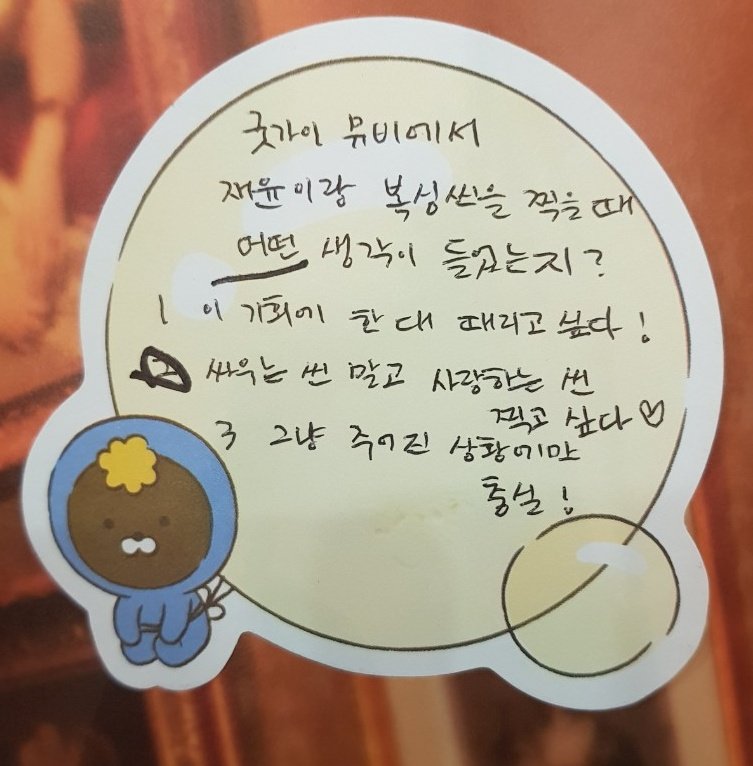 굿가이 뮤비에서
재윤이랑 복싱씬을 찍을 때
어떤 생각이 들었는지?
1 이 기회에 한 대 때리고 싶다!
2 싸우는 씬 말고 사랑하는 씬
찍고 싶다♡
3 그냥 주어진 상황에만
충실!